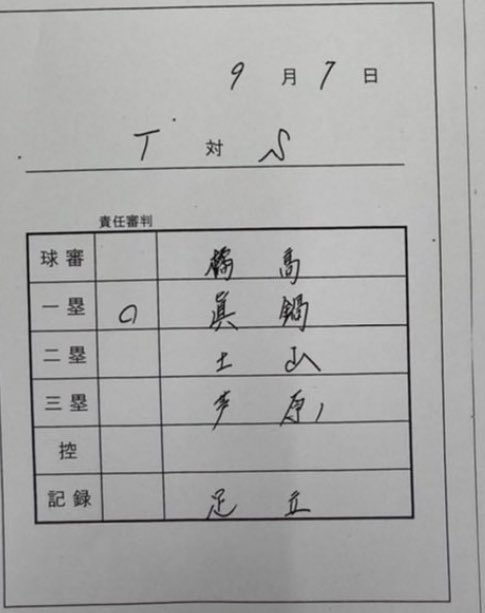 9月7日
T 対 S
責任審判
球審 橘高
一塁 ○ 眞鍋
二塁 土山
三塁 芦原
控
記録 足立